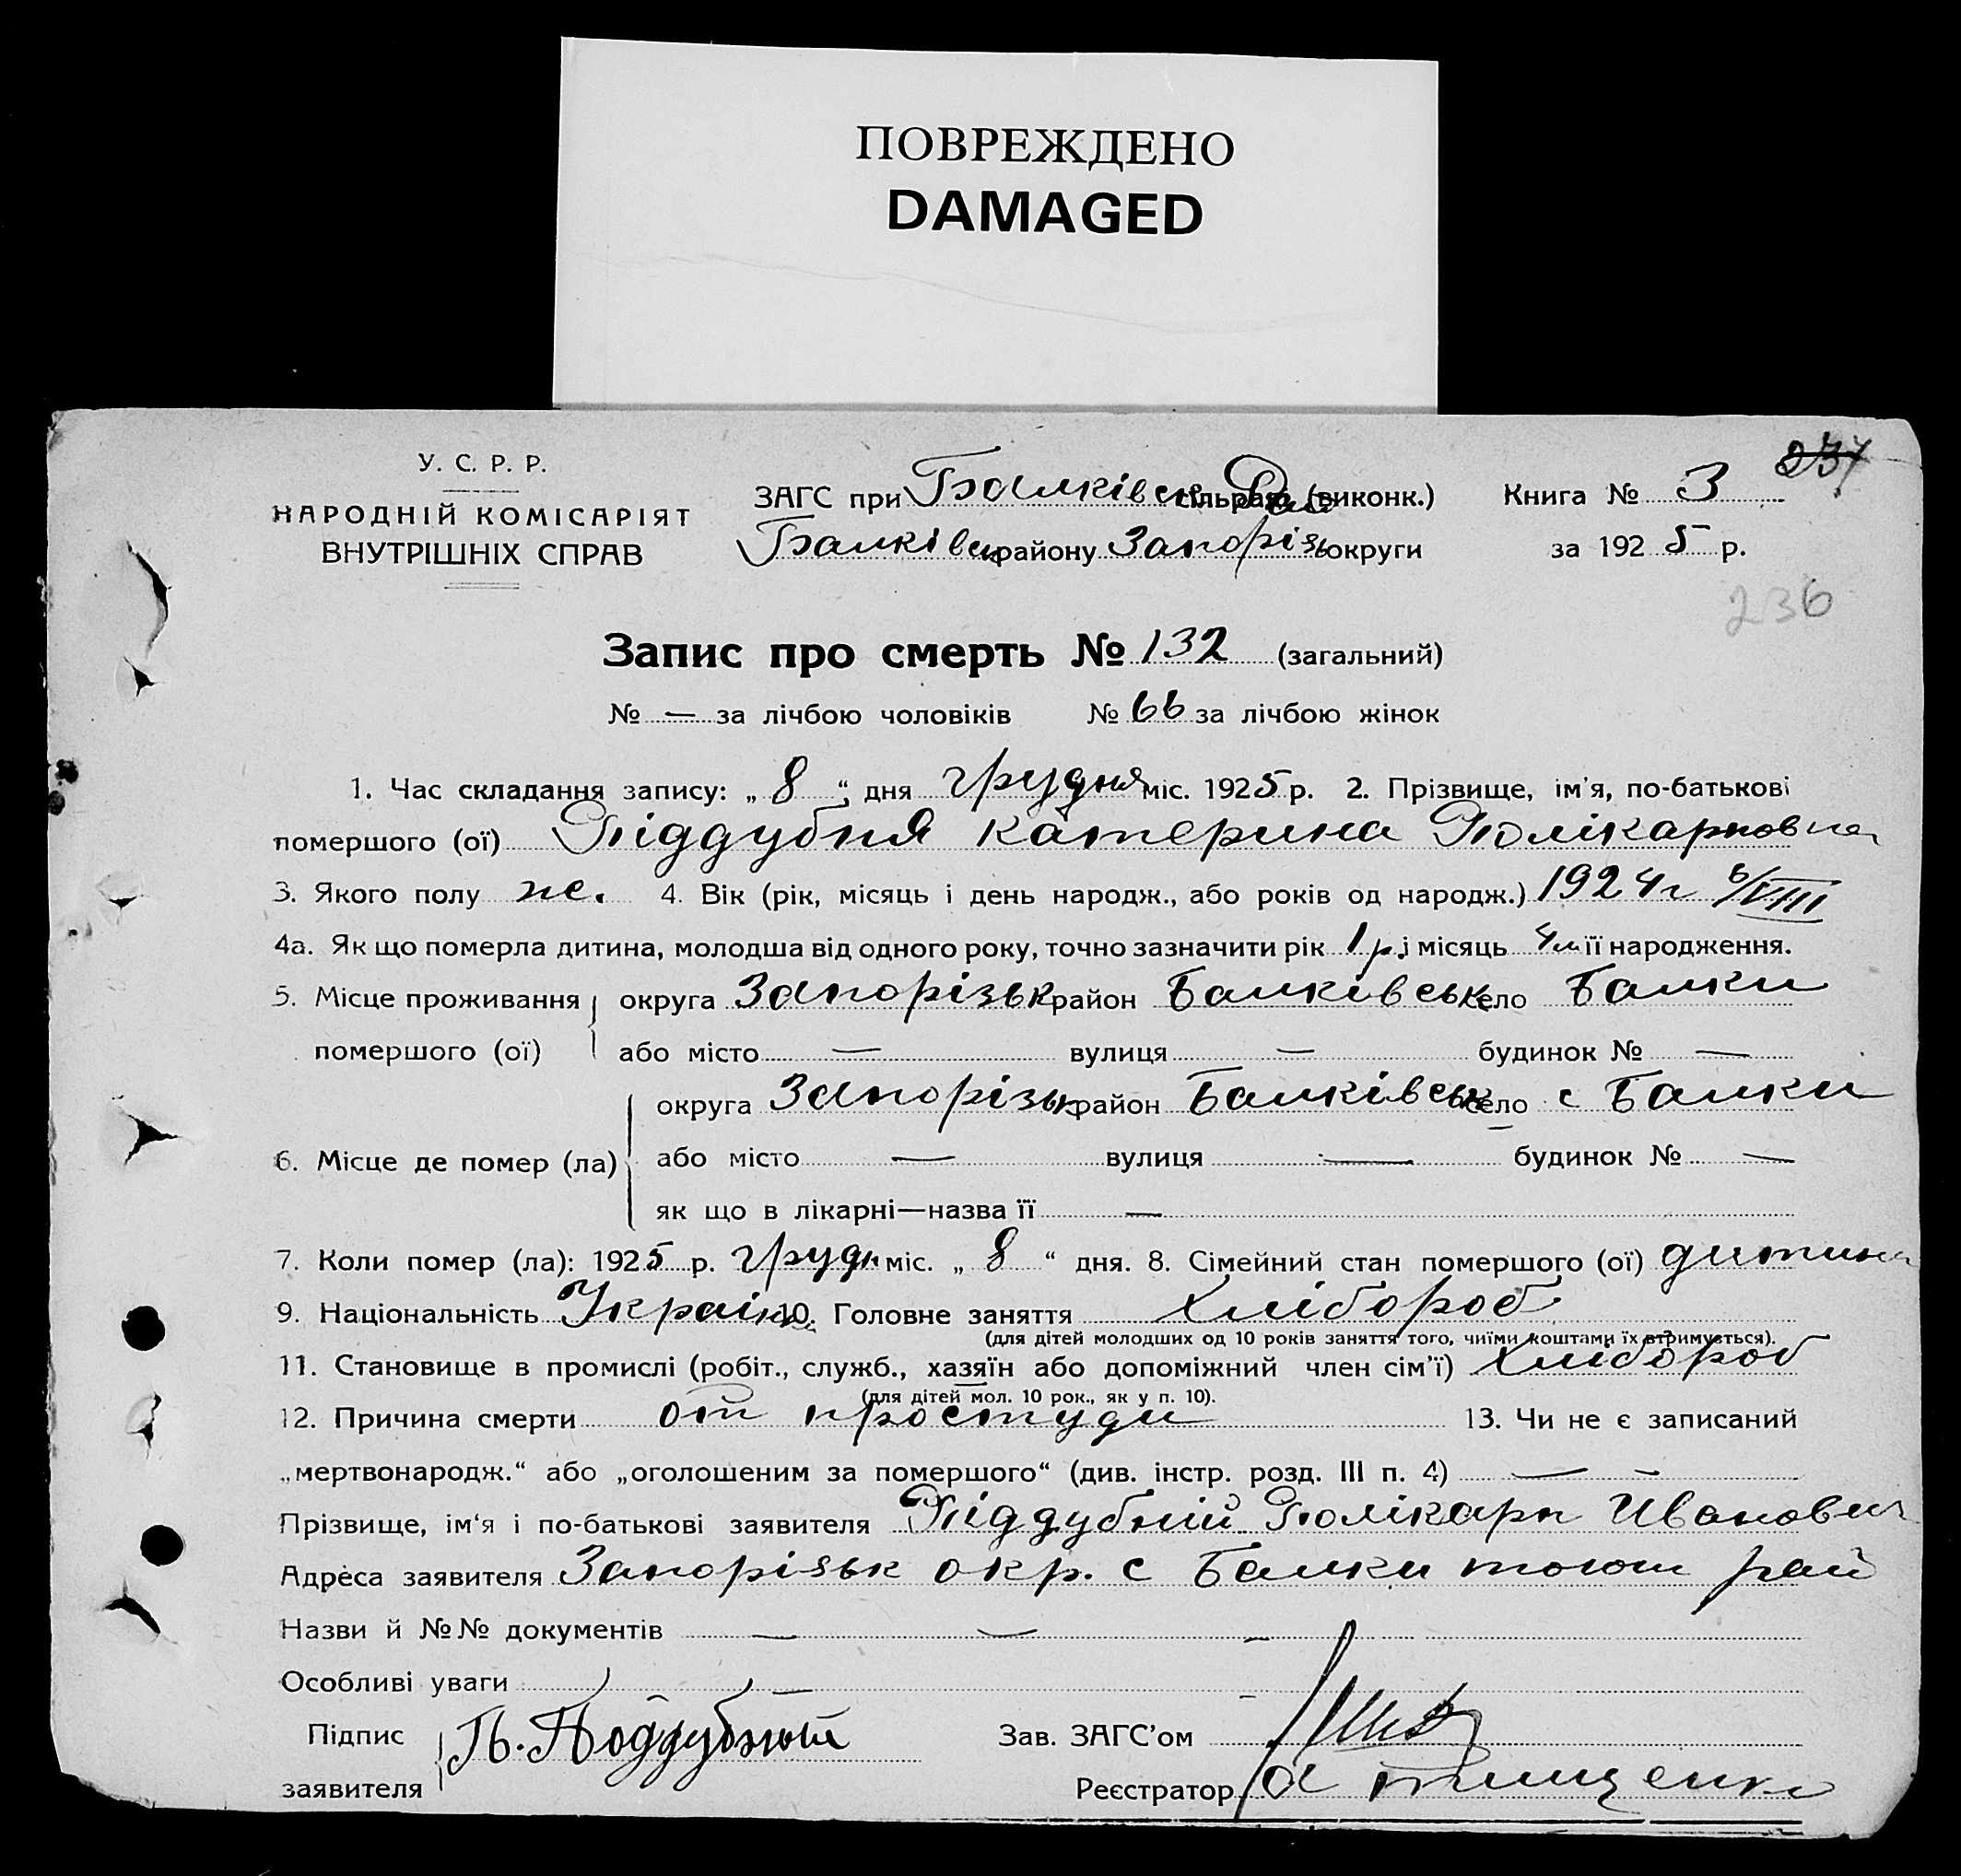 ПОВРЕЖДЕНО
DAMAGED
237
У. С. Р. Р.
НАРОДНІЙ КОМІСАРІЯТ
ВНУТРІШНІХ СПРАВ
ЗАГС при Балківск сільраді (виконк.)
Балківск району Запорізь округи
Книга № 3
за 1925 р.
236
Запис про смерть № 132 (загальний)
№ — за лічбою чоловіків № 66 за лічбою жінок
1. Час складання запису: „ 8 “ дня грудня міс. 1925 р. 2. Прізвище, ім'я, по-батькові
помершого (ої) Піддубня Катерина Полікарповна
3. Якого полу ж. 4. Вік (рік, місяць і день народж., або років од народж.) 1924 г 6/VIII
4а. Як що померла дитина, молодша від одного року, точно зазначити рік 1 р. і місяць 4 м її народження.
5. Місце проживання округа Запорізьк район Балківськ село Балки
помершого (ої) або місто — вулиця — будинок № —
округа Запорізьк район Балківськ село с Балки
6. Місце де помер (ла) або місто — вулиця — будинок № —
як що в лікарні—назва її —
7. Коли помер (ла): 1925 р. грудн міс. „ 8 “ дня. 8. Сімейний стан помершого (ої) дитина
9. Національність Україн 10. Головне заняття Хлібороб
(для дітей молодших од 10 років заняття того, чиїми коштами їх втримується).
11. Становище в промислі (робіт., служб., хазяїн або допоміжний член сім'ї) Хлібороб
(для дітей мол. 10 рок., як у п. 10).
12. Причина смерти от простуди 13. Чи не є записаний
„мертвонародж.“ або „оголошеним за помершого“ (див. інстр. розд. III п. 4) — –
Прізвище, ім'я і по-батькові заявителя Піддубний Полікарп Иванович
Адреса заявителя Запорізьк окр. с Балки тогож рай
Назви й №№ документів — — –
Особливі уваги —
Підпис заявителя П. Поддубный
Зав. ЗАГС'ом
Реєстратор Тищенко